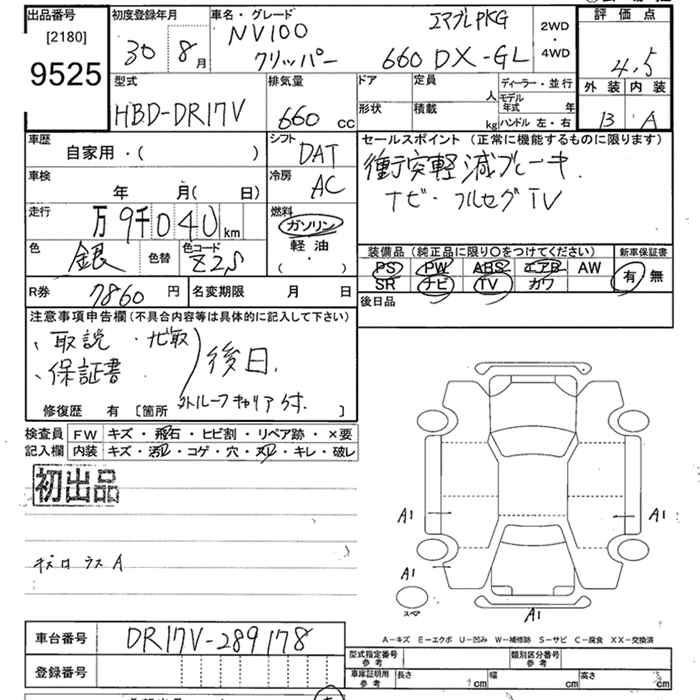 出品番号
[2180]
9525
初度登録年月
30 8月
車名・グレード
NV100
クリッパー
エマブレPKG
660 DX-GL
2WD
・
4WD
評価点
4.5
外装 内装
B A
型式
HBD-DR17V
排気量
660 CC
ドア
形状
定員 人
積載 kg
ディーラー・並行
モデル年式 年
ハンドル 左・右
車歴
自家用・( )
シフト
DAT
車検
年 月( 日)
冷房
AC
走行
万 9千040km
燃料
ガソリン
軽油
( ・ )
色
銀
色替
色コード
Z2S
R券 7860 円
名変期限 月 日
セールスポイント (正常に機能するものに限ります)
衝突軽減ブレーキ.
ナビ・フルセグTV
装備品(純正品に限り○をつけてください)
PS PW ABS エアB AW
SR ナビ TV カワ
新車保証書
有 無
後日品
注意事項申告欄(不具合内容等は具体的に記入して下さい)
、取説 ・ナビ取
、保証書
後日.
外ルーフキャリア付.
修復歴 有 [箇所 ]
検査員 FW キズ・飛石・ヒビ割・リペア跡・×要
記入欄 内装 キズ・汚レ・コゲ・穴・スレ・キレ・破レ
初出品
キズ A
A1
A1
A1
A1
スペア
A-キズ E-エクボ U-凹み W-補修跡 S-サビ C-腐食 XX-交換済
車台番号 DR17V-289178
登録番号
型式指定番号 参考
類別区分番号 参考
車庫証明用 参考 長さ cm 幅 cm 高さ cm